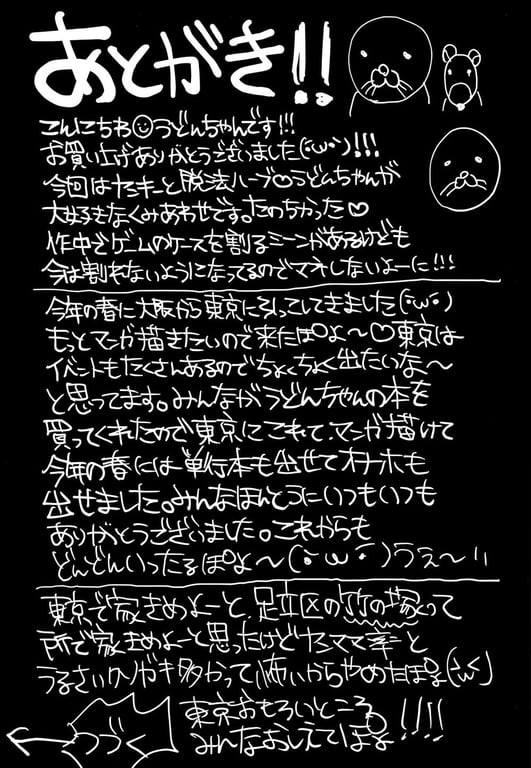 あとがき!!
こんにちわ☺うどんちゃんです!!!
お買い上げありがとうございました(・ω・)!!!
今回はヤンキーと脱法ハーブ♡うどんちゃんが
大好きなくみあわせです。たのちかった♡
作中でゲームのケースを割るシーンがあるけども
今は割れないようになってるのでマネしないよーに!!!
今年の春に大阪から東京にひっこしてきました(・ω・)
もっとマンガ描きたいので来たぽよ〜♡東京は
イベントもたくさんあるのでちょくちょく出たいな〜
と思ってます。みんながうどんちゃんの本を
買ってくれたので東京にこれて、マンガ描けて
今年の春には単行本も出せてオナホも
出せました。みんなほんとうにいつもいつも
ありがとうございました。これからも
どんどんいったるぽよ〜(・ω・)うぇ〜い
東京で家きめよーと、足立区の竹の塚って
所で家きめよーと思ったけどヤンママ率と
うるさいクソガキ多かって怖いからやめたぽよ(・ω<)
東京おもろいところ
みんなおしえてぽよ!!!!
つづく